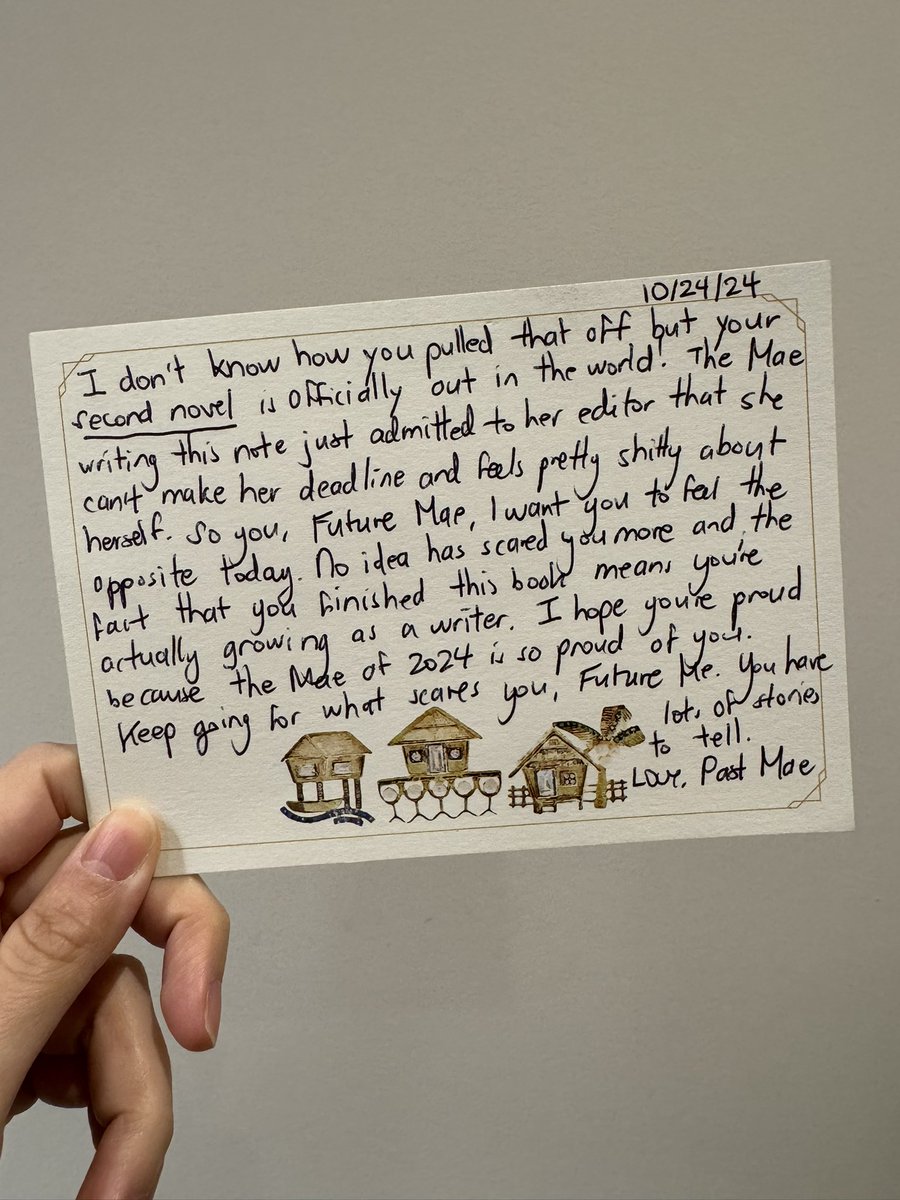 10/24/24
I don't know how you pulled that off but your
second novel is officially out in the world! The Mae
writing this note just admitted to her editor that she
can't make her deadline and feels pretty shitty about
herself. So you, Future Mae, I want you to feel the
opposite today. No idea has scared you more and the
fact that you finished this book means you're
actually growing as a writer. I hope you're proud
because the Mae of 2024 is so proud of you.
Keep going for what scares you, Future Me. You have
lots of stories
to tell.
Love, Past Mae